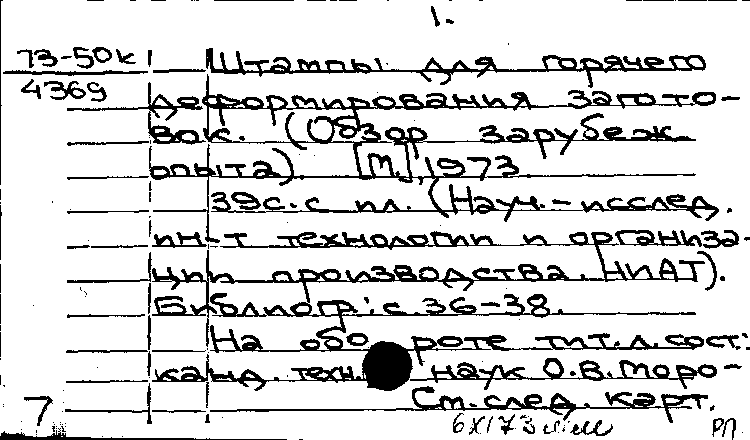 1.
73-50к Штампы для горячего
4369 деформирования загото-
вок. (Обзор зарубеж.
опыта). [М.], 1973.
39с. с ил. (Науч.-исслед.
ин-т технологии и организа-
ции производства. НИАТ).
Библиогр.: с. 36-38.
На обороте тит. л. сост:
канд. техн. наук О.В. Моро-
7 См. след. карт.
РП